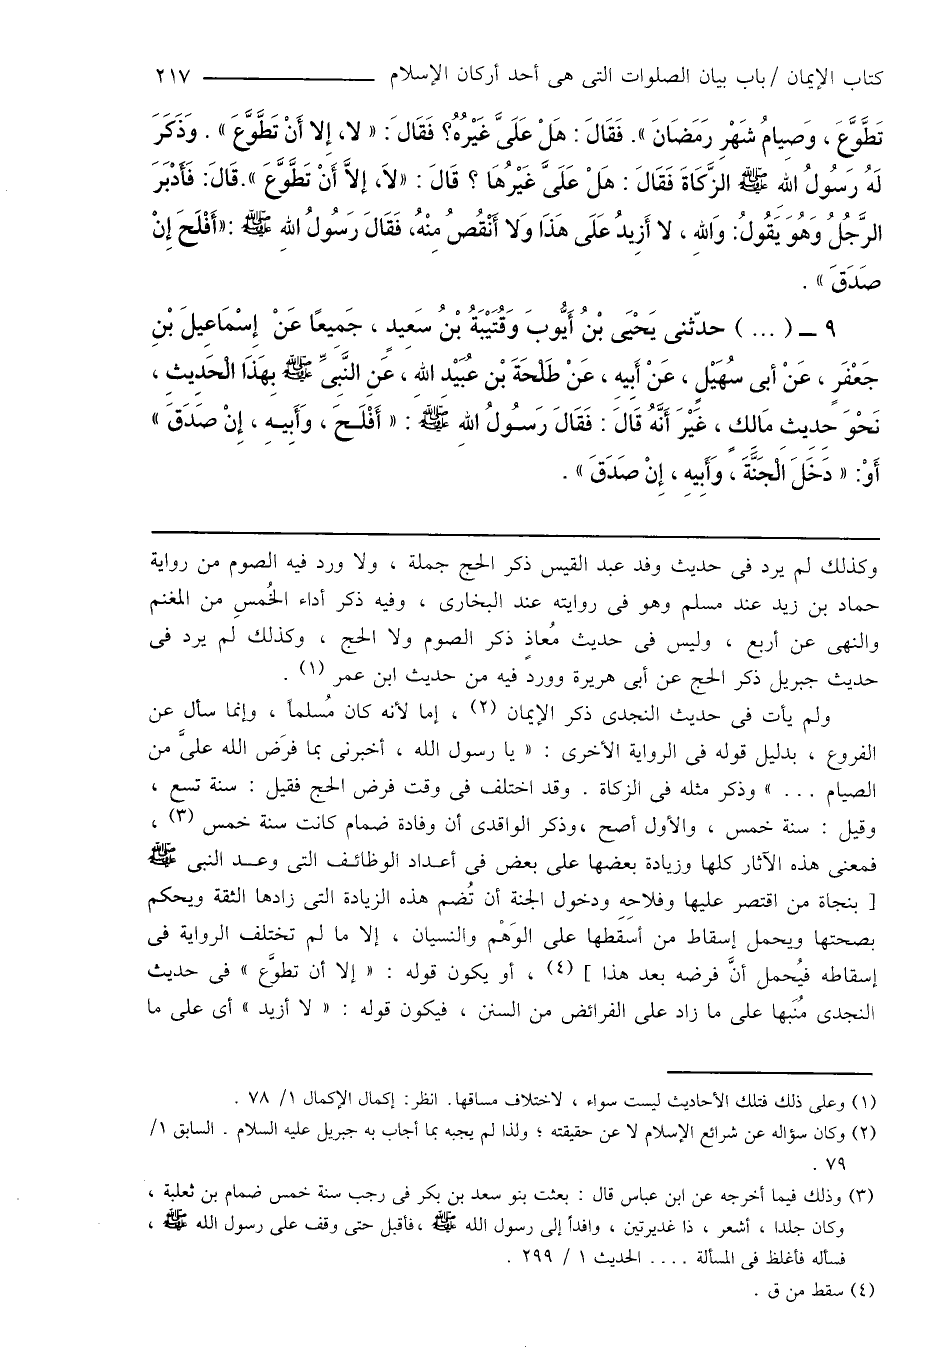 كتاب الإيمان / باب بيان الصلوات التى هى أحد أركان الإسلام ــــــــــــــ ٢١٧
تَطَّوَّعَ ، وَصِيامُ شَهْرِ رَمَضَانَ ». فَقَالَ : هَلْ عَلَىَّ غَيْرُهُ؟ فَقَالَ : « لا، إِلا أَنْ تَطَّوَّعَ » . وَذَكَرَ
لَهُ رَسُولُ الله ﷺ الزَّكَاةَ فَقَالَ : هَلْ عَلَىَّ غَيْرُهَا ؟ قَالَ : «لاَ، إِلاَّ أَنْ تَطَّوَّعَ ».قَالَ: فَأَدْبَرَ
الرَّجُلُ وَهُوَ يَقُولُ: وَاللهِ ، لا أَزِيدُ عَلَى هَذَا وَلا أَنْقُصُ مِنْهُ، فَقَالَ رَسُولُ الله ﷺ :«أَفْلَحَ إِنْ
صَدَقَ » .
٩ ــ ( ... ) حدّثنى يَحْيَى بْنُ أَيُّوبَ وَقُتَيْبَةُ بْنُ سَعِيدٍ ، جَمِيعًا عَنْ إِسْمَاعِيلَ بْنِ
جَعْفَرٍ ، عَنْ أَبى سُهَيْلٍ ، عَنْ أَبِيهِ ، عَنْ طَلْحَةَ بْنِ عُبَيْدِ الله ، عَنِ النَّبِىِّ ﷺ بِهَذَا الْحَدِيثِ ،
نَحْوَ حَدِيثِ مَالكٍ ، غَيْرَ أَنَّهُ قَالَ : فَقَالَ رَسُولُ الله ﷺ : « أَفْلَحَ ، وَأَبِيهِ ، إِنْ صَدَقَ »
أَوْ: « دَخَلَ الْجَنَّةَ ، وَأَبِيهِ ، إِنْ صَدَقَ » .
وكذلك لم يرد فى حديث وفد عبد القيس ذكر الحج جملة ، ولا ورد فيه الصوم من رواية
حماد بن زيد عند مسلم وهو فى روايته عند البخارى ، وفيه ذكر أداء الخُمسِ من المغنم
والنهى عن أربع ، وليس فى حديث مُعاذٍ ذكر الصوم ولا الحج ، وكذلك لم يرد فى
حديث جبريل ذكر الحج عن أبى هريرة وورد فيه من حديث ابن عمر (١) .
ولم يأت فى حديث النجدى ذكر الإيمان (٢) ، إما لأنه كان مُسلماً ، وإنما سأل عن
الفروع ، بدليل قوله فى الرواية الأخرى : « يا رسول الله ، أخبرنى بما فرَض الله علىَّ من
الصيام ... » وذكر مثله فى الزكاة . وقد اختلف فى وقت فرض الحج فقيل : سنة تسع ،
وقيل : سنة خمس ، والأول أصح ،وذكر الواقدى أن وفادة ضمام كانت سنة خمس (٣) ،
فمعنى هذه الآثار كلها وزيادة بعضها على بعض فى أعداد الوظائف التى وعد النبى ﷺ
[ بنجاة من اقتصر عليها وفلاحِهِ ودخول الجنة أن تُضم هذه الزيادة التى زادها الثقة ويحكم
بصحتها ويحمل إسقاط من أسقطها على الوَهْم والنسيان ، إلا ما لم تختلف الرواية فى
إسقاطه فيُحمل أنَّ فرضه بعد هذا ] (٤) ، أو يكون قوله : « إلا أن تطوَّع » فى حديث
النجدى مُنَبها على ما زاد على الفرائض من السنن ، فيكون قوله : « لا أزيد » أى على ما
(١) وعلى ذلك فتلك الأحاديث ليست سواء ، لاختلاف مساقها. انظر: إكمال الإكمال ١/ ٧٨ .
(٢) وكان سؤاله عن شرائع الإسلام لا عن حقيقته ؛ ولذا لم يجبه بما أجاب به جبريل عليه السلام . السابق ١/
٧٩ .
(٣) وذلك فيما أخرجه عن ابن عباس قال : بعثت بنو سعد بن بكر فى رجب سنة خمس ضمام بن ثعلبة ،
وكان جلدا ، أشعر ، ذا غديرتين ، وافداً إلى رسول الله ﷺ ،فأقبل حتى وقف على رسول الله ﷺ ،
فسأله فأغلظ فى المسألة .... الحديث ١ / ٢٩٩ .
(٤) سقط من ق .